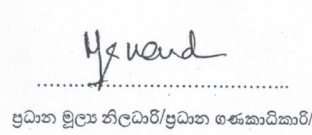 ප්‍රධාන මූල්‍ය නිලධාරි/ප්‍රධාන ගණකාධිකාරි/